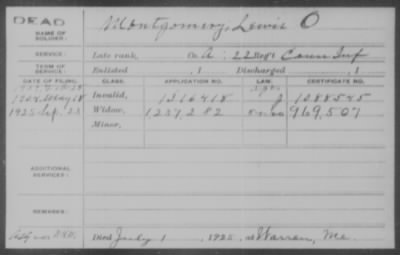 DEAD
NAME OF SOLDIER: Montgomery, Lewis O
SERVICE: Late rank, Co. A, 22 Reg't Conn Inf
TERM OF SERVICE: Enlisted , 1 Discharged , 1
DATE OF FILING. CLASS. APPLICATION NO. LAW. CERTIFICATE NO.
1904 May 18 Invalid, 1316418 J 1088545
1925 Sep. 23 Widow, 1237282 969,507
Minor,
ADDITIONAL SERVICES:
REMARKS:
Died July 1, 1925, at Warren, Me.